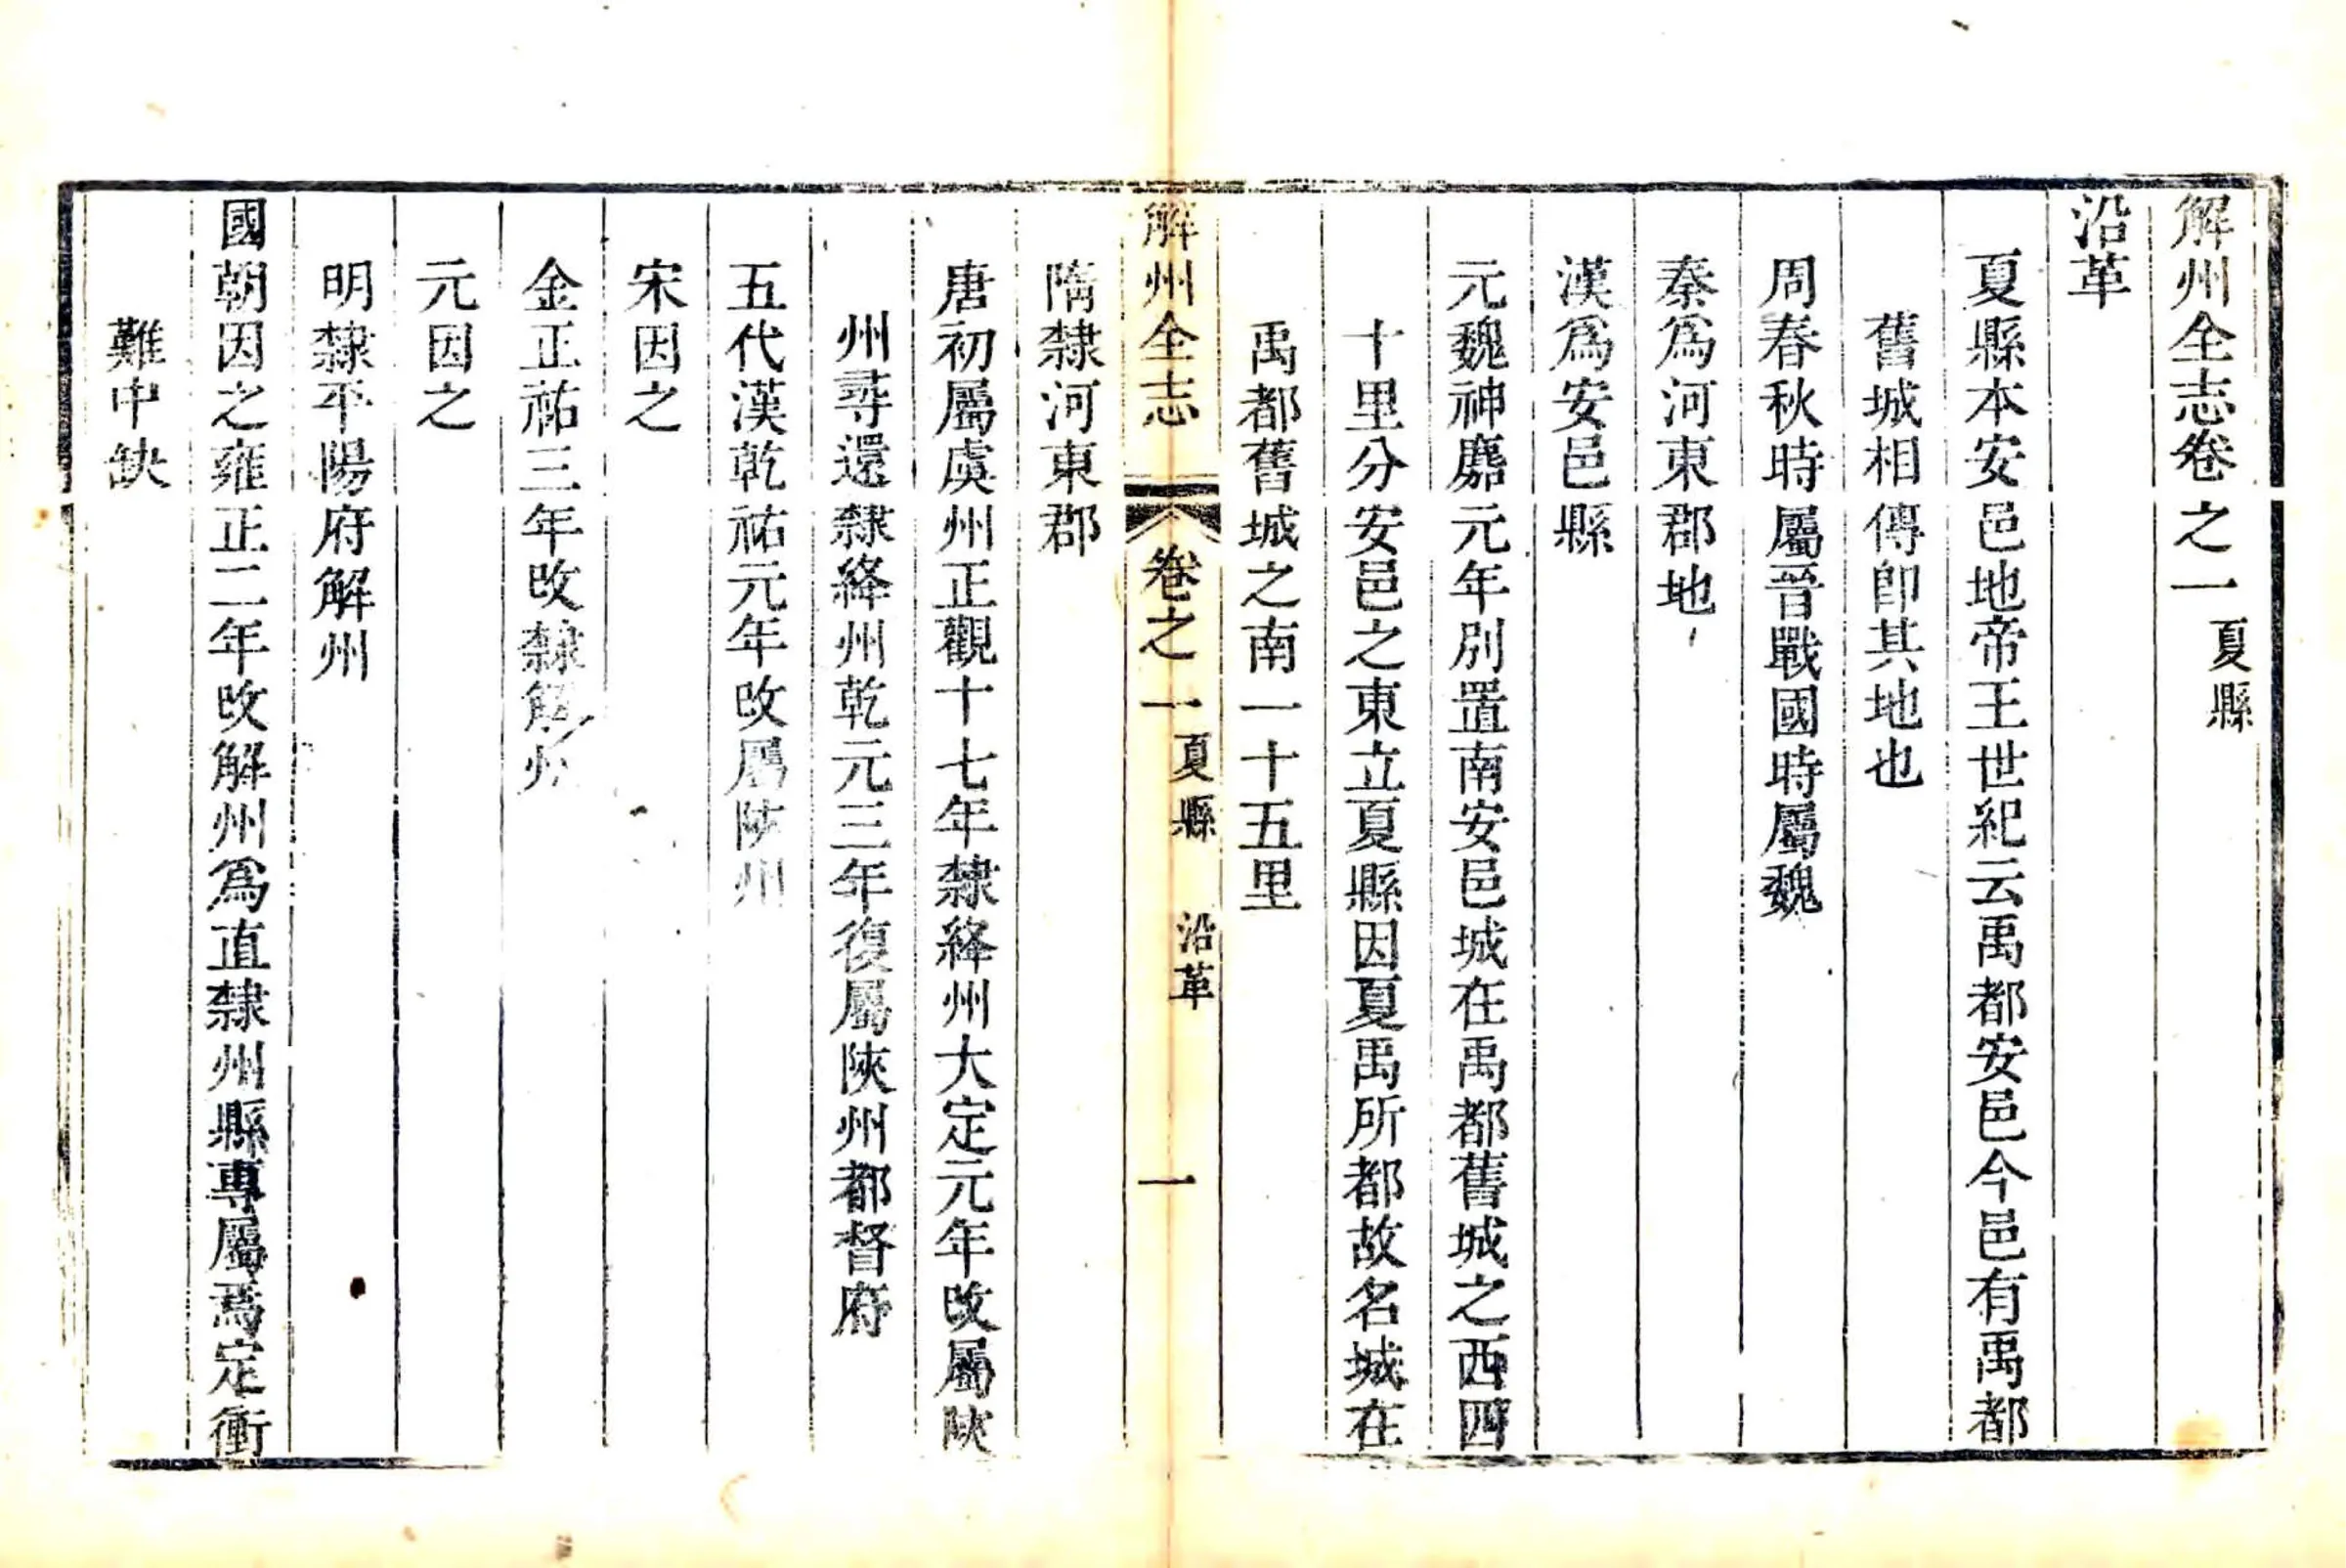 解州全志卷之一 夏縣
沿革
夏縣本安邑地帝王世紀云禹都安邑今邑有禹都
舊城相傳卽其地也
周春秋時屬晉戰國時屬魏
秦爲河東郡地
漢爲安邑縣
元魏神䴥元年別置南安邑城在禹都舊城之西四
十里分安邑之東立夏縣因夏禹所都故名城在
禹都舊城之南一十五里
解州全志 卷之一 夏縣 沿革 一
隋隸河東郡
唐初屬虞州正觀十七年隸絳州大定元年改屬陜
州尋還隸絳州乾元三年復屬陜州都督府
五代漢乾祐元年改屬陜州
宋因之
金正祐三年改隸解州
元因之
明隸平陽府解州
國朝因之雍正二年改解州爲直隸州縣專屬焉定衝
難中缺